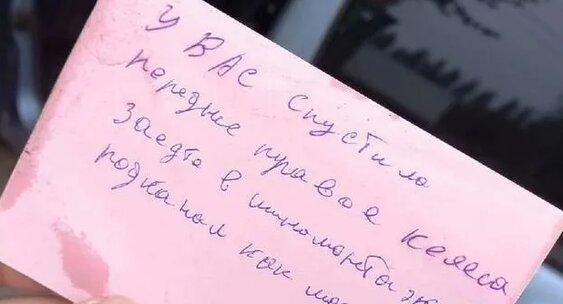 У ВАС спустило
переднее правое келеса
Заедте в шиномонтаж
подкачал как